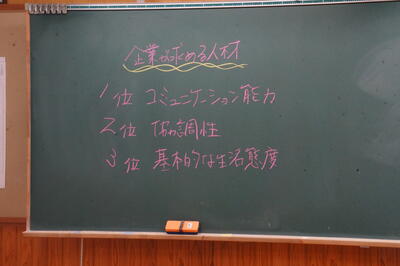 企業が求める人材
1位 コミュニケーション能力
2位 協調性
3位 基本的な生活態度